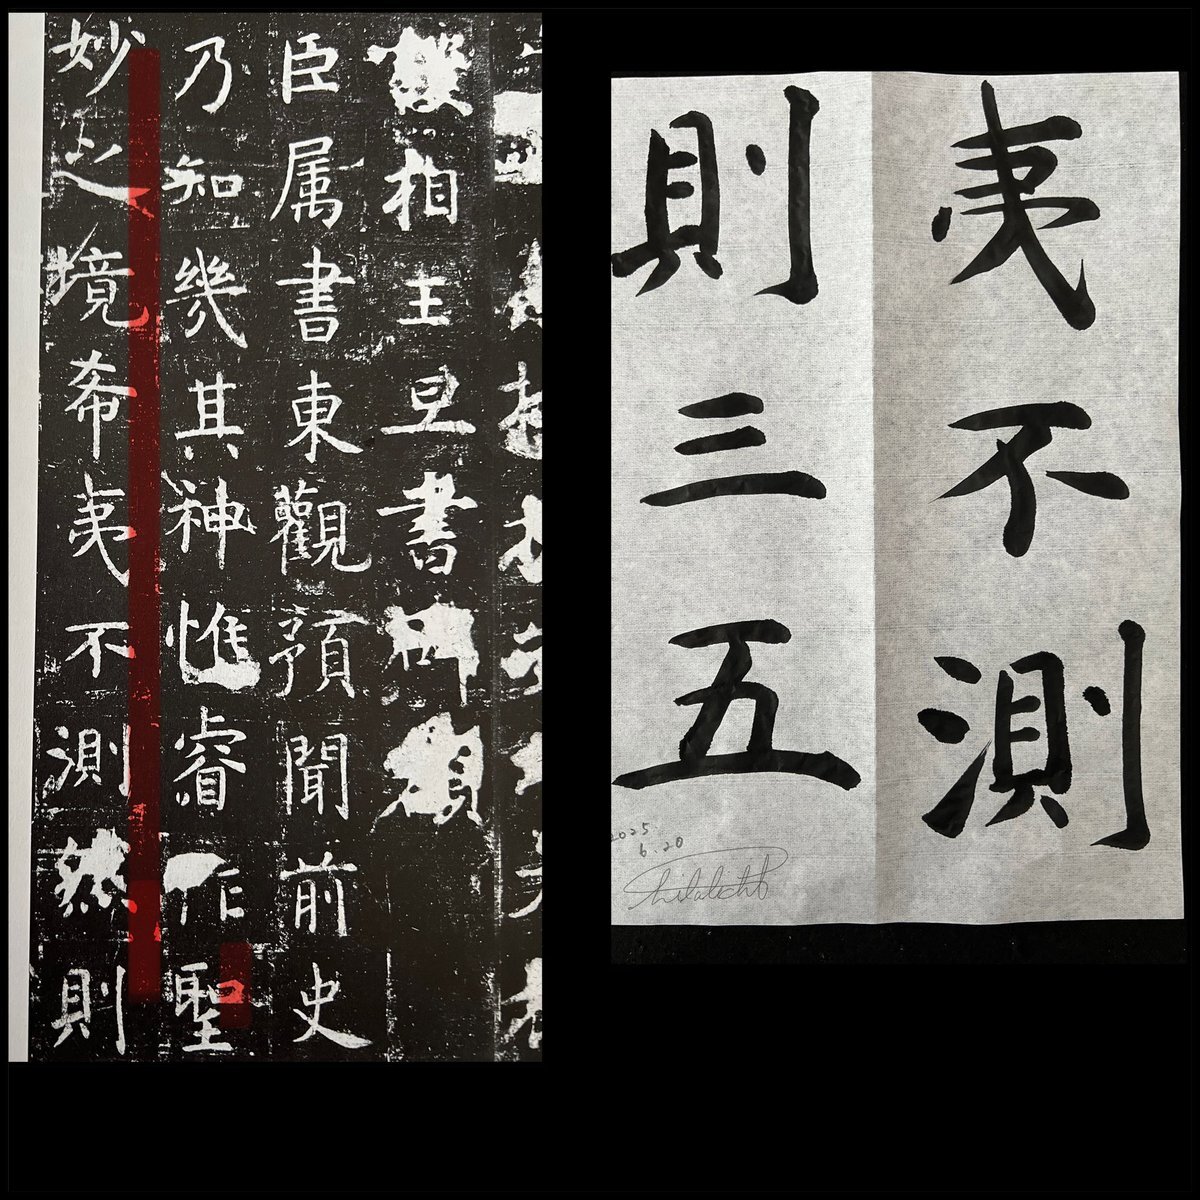 護相王旦書碑額
臣属書東觀預聞前史
乃知幾其神惟睿作聖
妙之境希夷不測然則
夷不測
則三五
2025
6.20